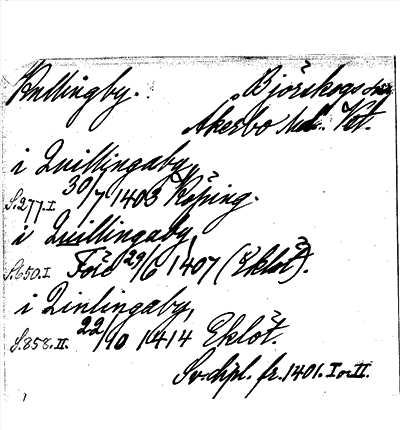 Kullingby. Björskogs sn
Åkerbo hd. Vstm.
i Quillingaby,
S.277.I 30/7 1403 Köping.
i Quillingaby,
S.650.I 29/6 1407 (Eklöt).
i Qinlingaby,
S.858.II. 22/10 1414 Eklöt.
Sv. dipl. fr. 1401. I o II.